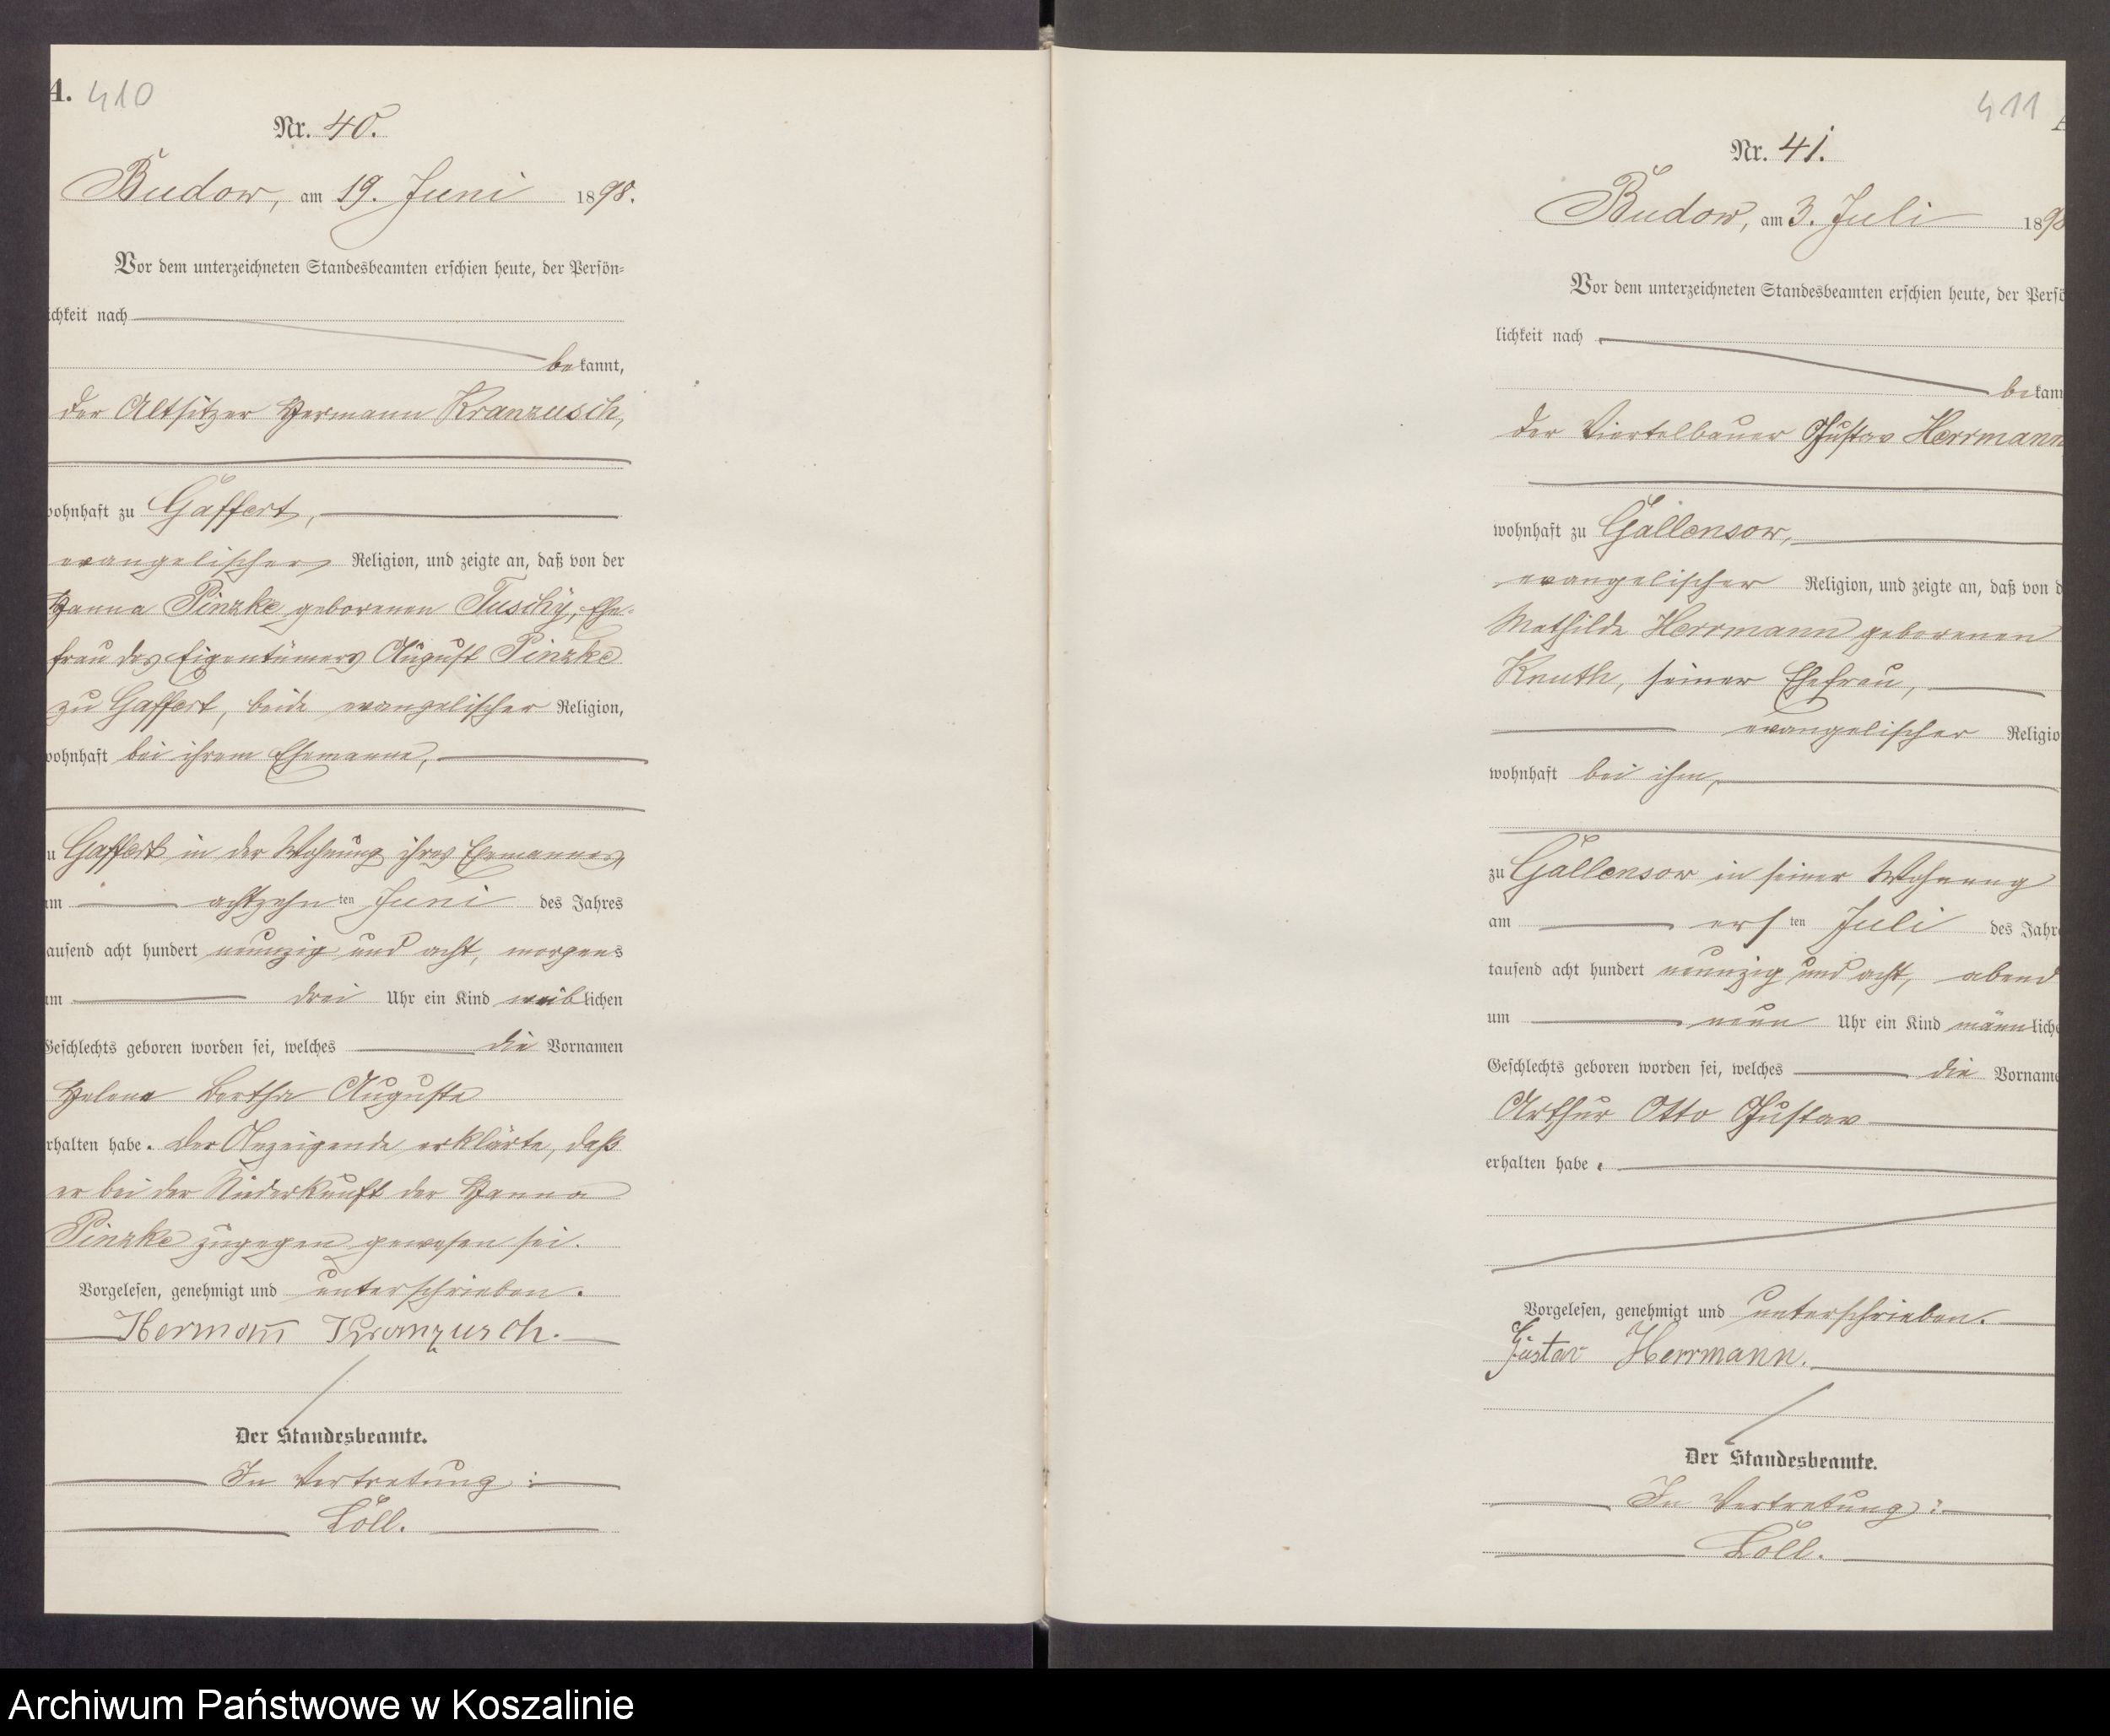 A. 410
Nr. 40.
Budow, am 19. Juni 1898.
Vor dem unterzeichneten Standesbeamten erschien heute, der Persön-
ichkeit nach
bekannt,
der Altsitzer Hermann Kranzusch,
wohnhaft zu Gaffert,
evangelischer Religion, und zeigte an, daß von der
Hanna Pinzke geborenen Tuschy, Ehe-
frau des Eigentümers August Pinzke
zu Gaffert, beide evangelischer Religion,
wohnhaft bei ihrem Ehemanne,
u Gaffert in der Wohnung ihres Ehemannes,
am achtzehnten Juni des Jahres
tausend acht hundert neunzig und acht, morgens
um drei Uhr ein Kind weiblichen
Geschlechts geboren worden sei, welches die Vornamen
Helene Bertha Auguste
erhalten habe. Der Anzeigende erklärte, daß
er bei der Niederkunft der Hanna
Pinzke zugegen gewesen sei.
Vorgelesen, genehmigt und unterschrieben.
Hermann Kranzusch.
Der Standesbeamte.
In Vertretung:
Löll.
411
Nr. 41.
Budow, am 3. Juli 189
Vor dem unterzeichneten Standesbeamten erschien heute, der Persö
lichkeit nach
bekann
der Viertelbauer Gustav Herrmann
wohnhaft zu Gallensow,
evangelischer Religion, und zeigte an, daß von d
Mathilde Herrmann geborenen
Knuth, seiner Ehefrau,
evangelischer Religio
wohnhaft bei ihm,
zu Gallensow in seiner Wohnung
am ersten Juli des Jahre
tausend acht hundert neunzig und acht, abend
um neun Uhr ein Kind männliche
Geschlechts geboren worden sei, welches die Vorname
Arthur Otto Gustav
erhalten habe.
Vorgelesen, genehmigt und unterschrieben.
Gustav Herrmann.
Der Standesbeamte.
In Vertretung:
Löll.
Archiwum Państwowe w Koszalinie